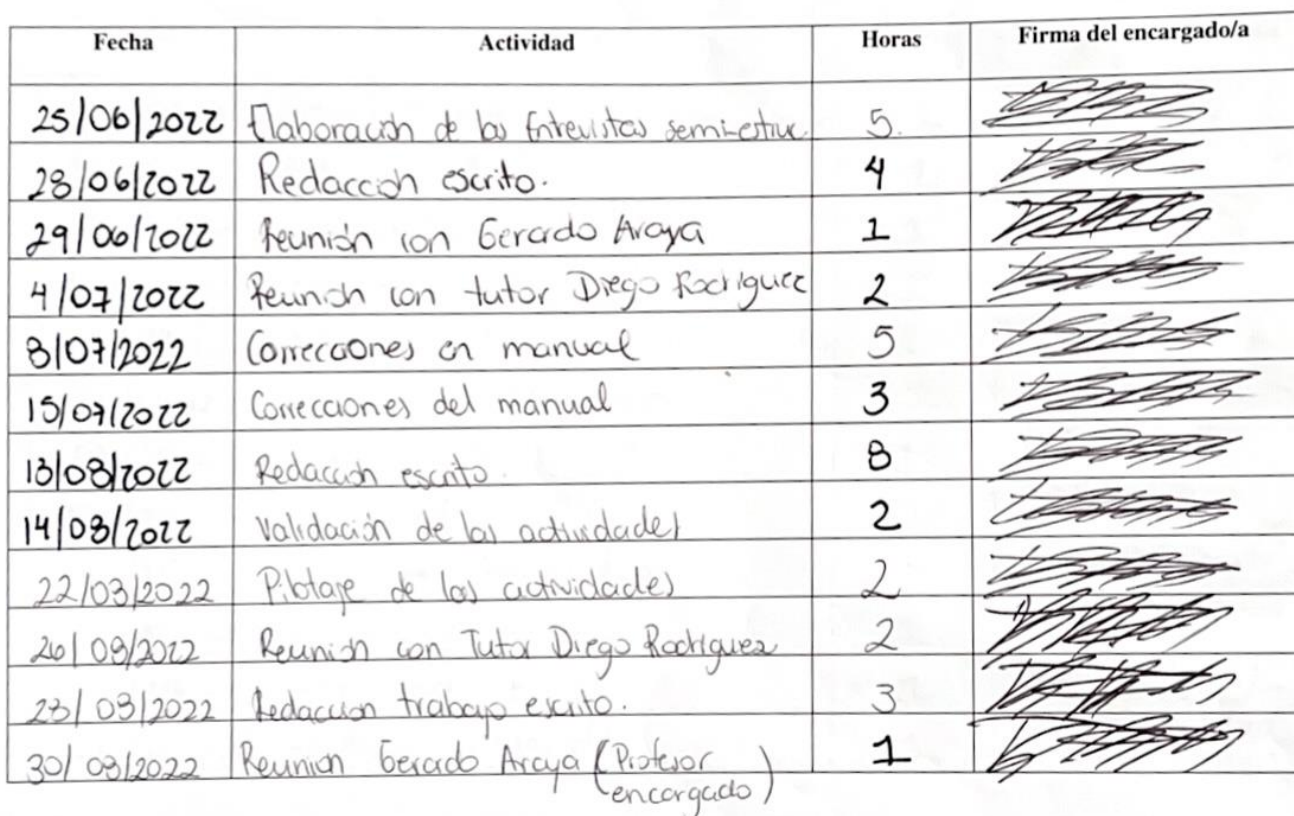 Fecha Actividad Horas Firma del encargado/a
25/06/2022 Elaboración de las Entrevistas semi-estruc 5.
28/06/2022 Redacción escrito. 4
29/06/2022 Reunión con Gerardo Araya 1
4/07/2022 Reunión con tutor Diego Rodriguez 2
8/07/2022 Correcciones en manual 5
15/07/2022 Correcciones del manual 3
13/08/2022 Redacción escrito. 8
14/08/2022 Validación de las actividades 2
22/08/2022 Pilotaje de las actividades 2
26/08/2022 Reunión con Tutor Diego Rodriguez 2
28/08/2022 Redacción trabajo escrito. 3
30/08/2022 Reunion Gerardo Araya (Profesor 1
encargado)